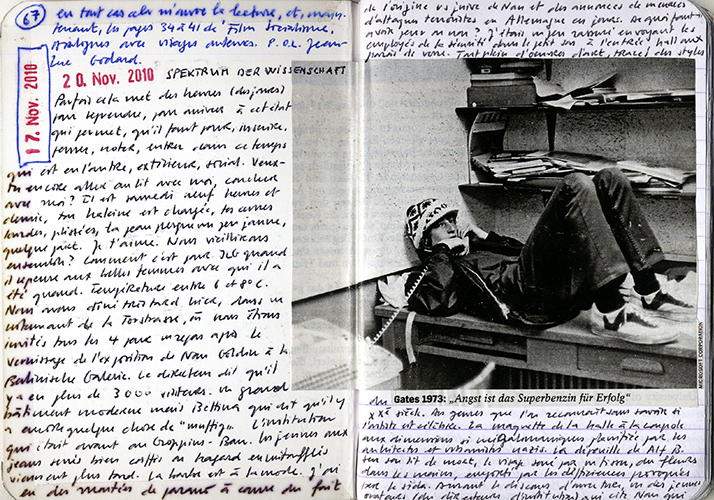 67
en tout cas cela m'ouvre la lecture, et, main-
tenant, les pages 34 à 41 de Film Socialisme,
dialogues avec visages auteurs. P.O.L. Jean-
Luc Godard.
17. Nov. 2010
20. Nov. 2010 SPEKTRUM DER WISSENSCHAFT
Parfois cela met des heures (des jours)
pour reprendre, pour arriver à cet état
qui permet, qu'il faut pour, inscrire.
penser, noter, entrer dans ce temps
qui est en l'autre, extérieur, social. Veux-
tu encore aller au lit avec moi, coucher
avec moi? Il est samedi neuf heures et
demie, ton haleine est chargée, tes
lourdes, plissées, la peau presque un peu jaune,
quelque part. Je t'aime. Nous vieillirons
ensemble? Comment c'est pour toi quand
il repense aux belles femmes avec qui il a
été quand. Température entre 6 et 8°C.
Nous avons dîné très tard hier, dans un
restaurant de la Torstrasse, où nous étions
invités tous les 4 pour un repas après le
vernissage de l'exposition de Nan Goldin à la
Berlinische Galerie. Le directeur dit qu'il
y a eu plus de 3000 visiteurs. Un grand
bâtiment moderne mais Bettina qui dit qu'il y
a encore quelque chose de "muffig". L'institution
qui était avant au Gropius-Bau. Les jeunes aux
jeans serrés bien coiffés au regard emmitouflés
viennent plus tard. La barbe est à la mode. J'ai
eu des montées de parano à cause du fait
de l'origine juive de Nan et des annonces de menaces
d'attaques terroristes en Allemagne ces jours. De quoi faut-il
avoir peur ou non? J'étais un peu rassuré en voyant les
employés de la sécurité dans le petit sas à l'entrée, hall aux
parois de verre. Tout plein d'œuvres d'art, traces des styles
MICROSOFT CORPORATION
Gates 1973: „Angst ist das Superbenzin für Erfolg“
du
XXe siècle. Des genres que l'on reconnaît sans savoir si
l'artiste est célèbre. La maquette de la halle à la coupole
aux dimensions si mégalomaniaques planifiée par les
architectes et urbanistes nazis. La dépouille de Alf B.
sur son lit de mort, le visage, des fleurs
dans les mains, par les déficiences provoquées
par le sida. Durant le discours d'ouverture, un des jeunes
orateurs (ou directeurs d'institution) qui cite Nan que